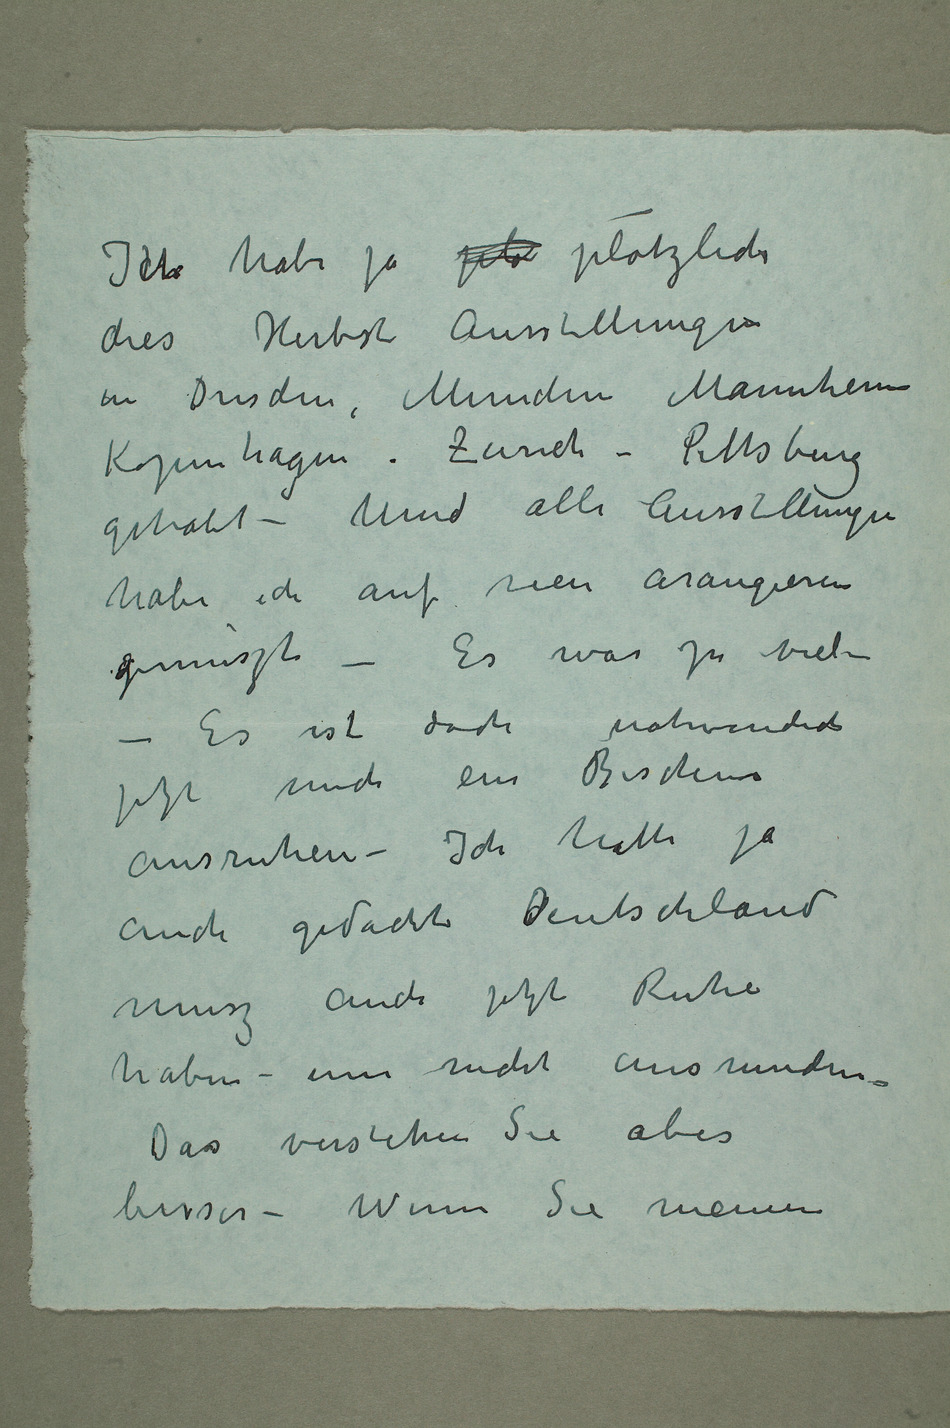 Ich habe ja plo plötzlich
dies Herbst Ausstellungen
in Dresden, München Mannheim
Kopenhagen. Zürich – Pittsburg
gehabt – Und alle Ausstellungen
habe ich auf neu arangieren
gemuszt – Es war zu viel –
– Es ist doch notwendich
jetzt mich ein Bischen
ausruhen – Ich hatte ja
auch gedacht Deutschland
musz auch jetzt Ruhe
haben – um nicht
Das verstehen Sie aber
besser – Wenn Sie meinen